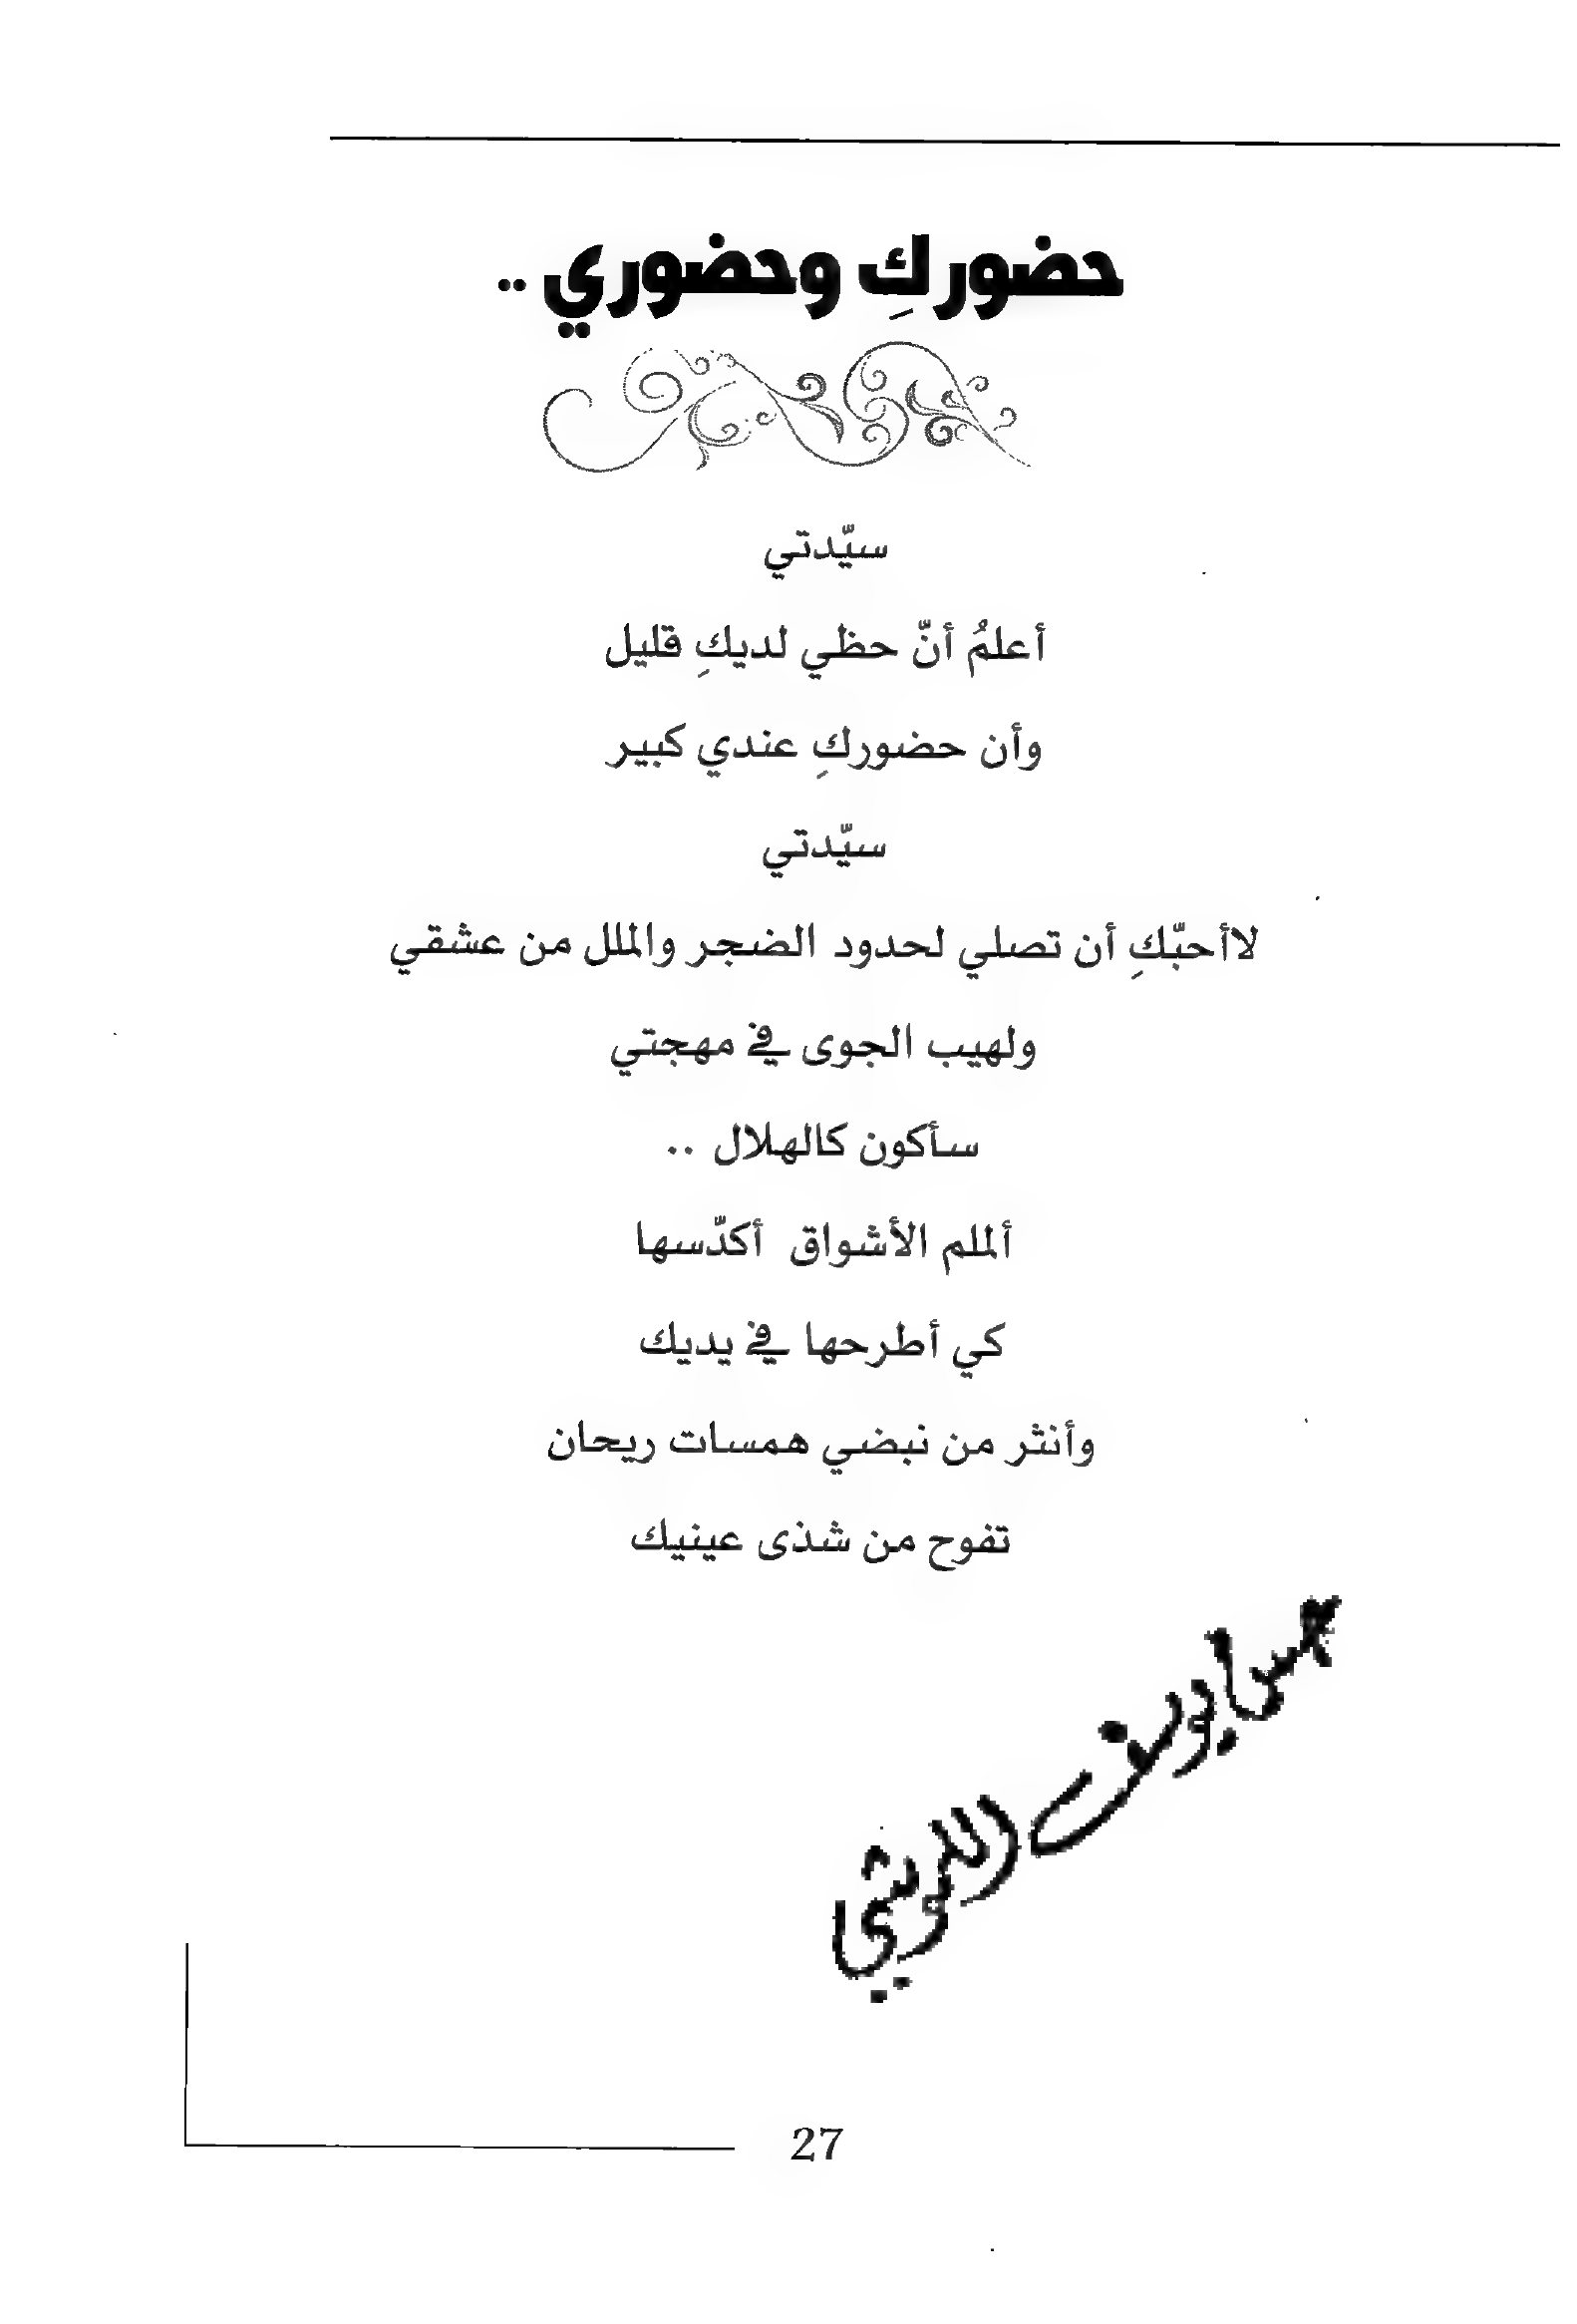 حضوركِ وحضوري ..
سيّدتي
أعلمُ أنّ حظي لديكِ قليل
وأن حضوركِ عندي كبير
سيّدتي
لاأحبّكِ أن تصلي لحدود الضجر والملل من عشقي
ولهيب الجوى في مهجتي
سأكون كالهلال ..
ألملم الأشواق أكدّسها
كي أطرحها في يديك
وأنثر من نبضي همسات ريحان
تفوح من شذى عينيك
يوسف
27